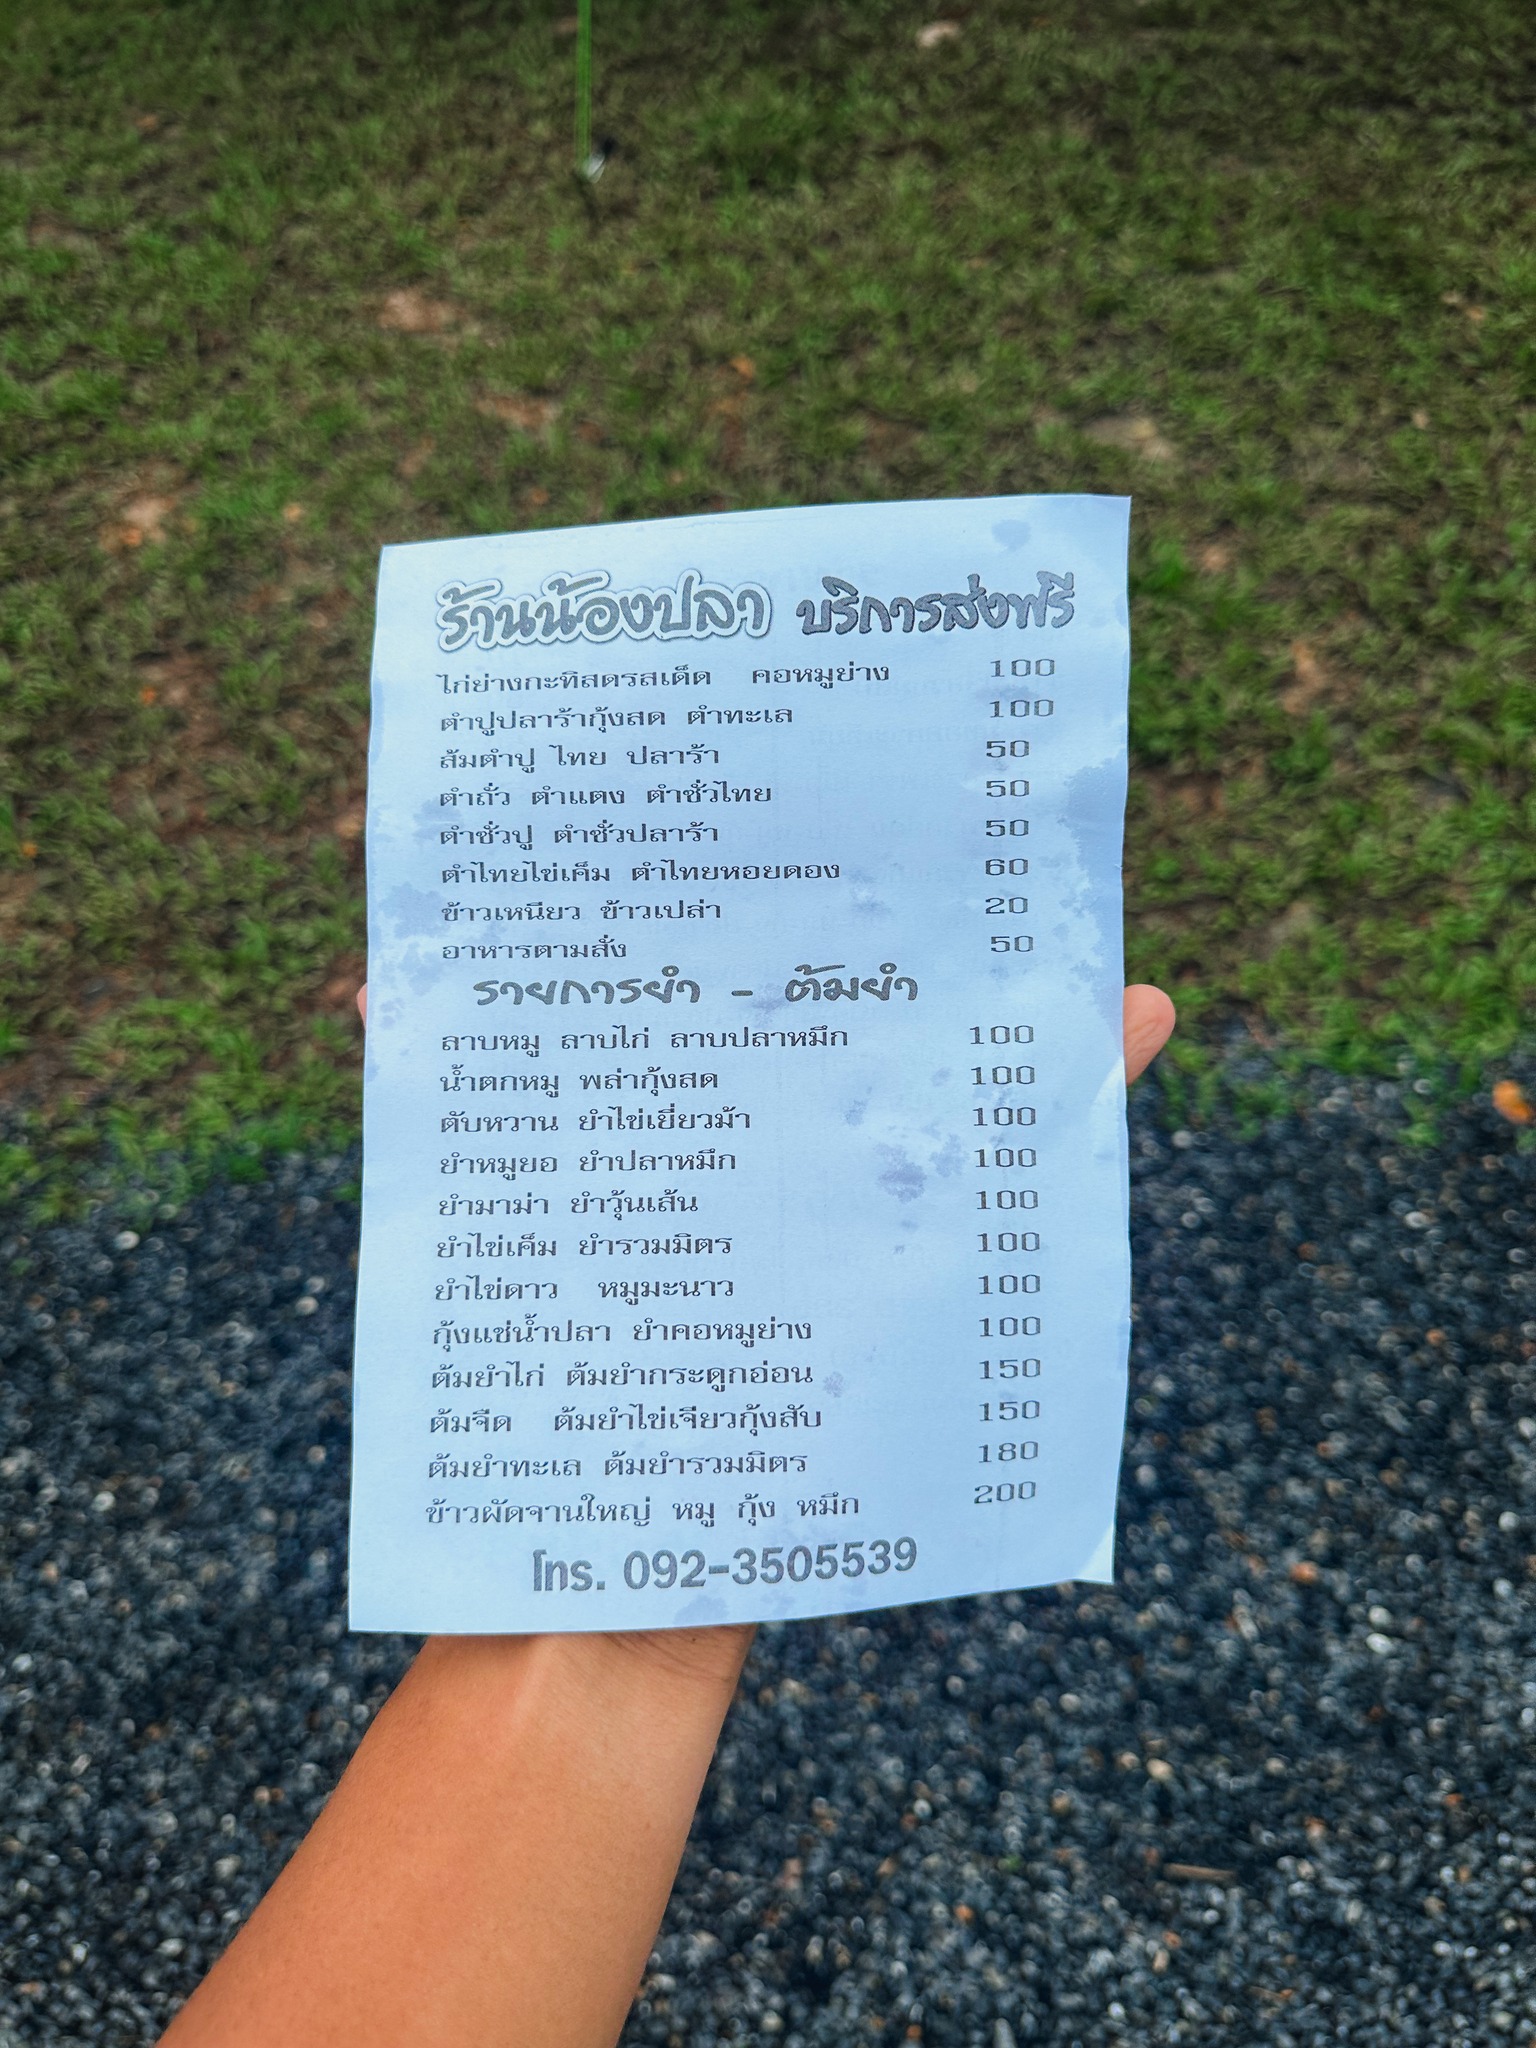 ร้านน้องปลา บริการส่งฟรี
ไก่ย่างกะทิสดรสเด็ด คอหมูย่าง 100
ตำปูปลาร้ากุ้งสด ตำทะเล 100
ส้มตำปู ไทย ปลาร้า 50
ตำถั่ว ตำแตง ตำซั่วไทย 50
ตำซั่วปู ตำซั่วปลาร้า 50
ตำไทยไข่เค็ม ตำไทยหอยดอง 60
ข้าวเหนียว ข้าวเปล่า 20
อาหารตามสั่ง 50
รายการยำ - ต้มยำ
ลาบหมู ลาบไก่ ลาบปลาหมึก 100
น้ำตกหมู พล่ากุ้งสด 100
ตับหวาน ยำไข่เยี่ยวม้า 100
ยำหมูยอ ยำปลาหมึก 100
ยำมาม่า ยำวุ้นเส้น 100
ยำไข่เค็ม ยำรวมมิตร 100
ยำไข่ดาว หมูมะนาว 100
กุ้งแช่น้ำปลา ยำคอหมูย่าง 100
ต้มยำไก่ ต้มยำกระดูกอ่อน 150
ต้มจืด ต้มยำไข่เจียวกุ้งสับ 150
ต้มยำทะเล ต้มยำรวมมิตร 180
ข้าวผัดจานใหญ่ หมู กุ้ง หมึก 200
โทร. 092-3505539